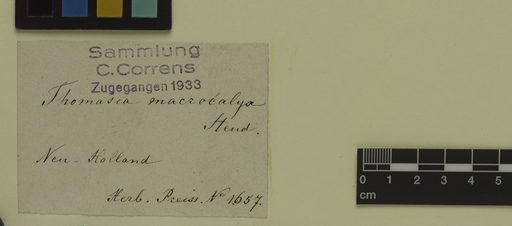 Sammlung
C. Correns
Zugegangen 1933
Thomasia macrocalyx
Steud.
Neu-Holland
Herb. Preiss. No 1657.
0 1 2 3 4 5
cm